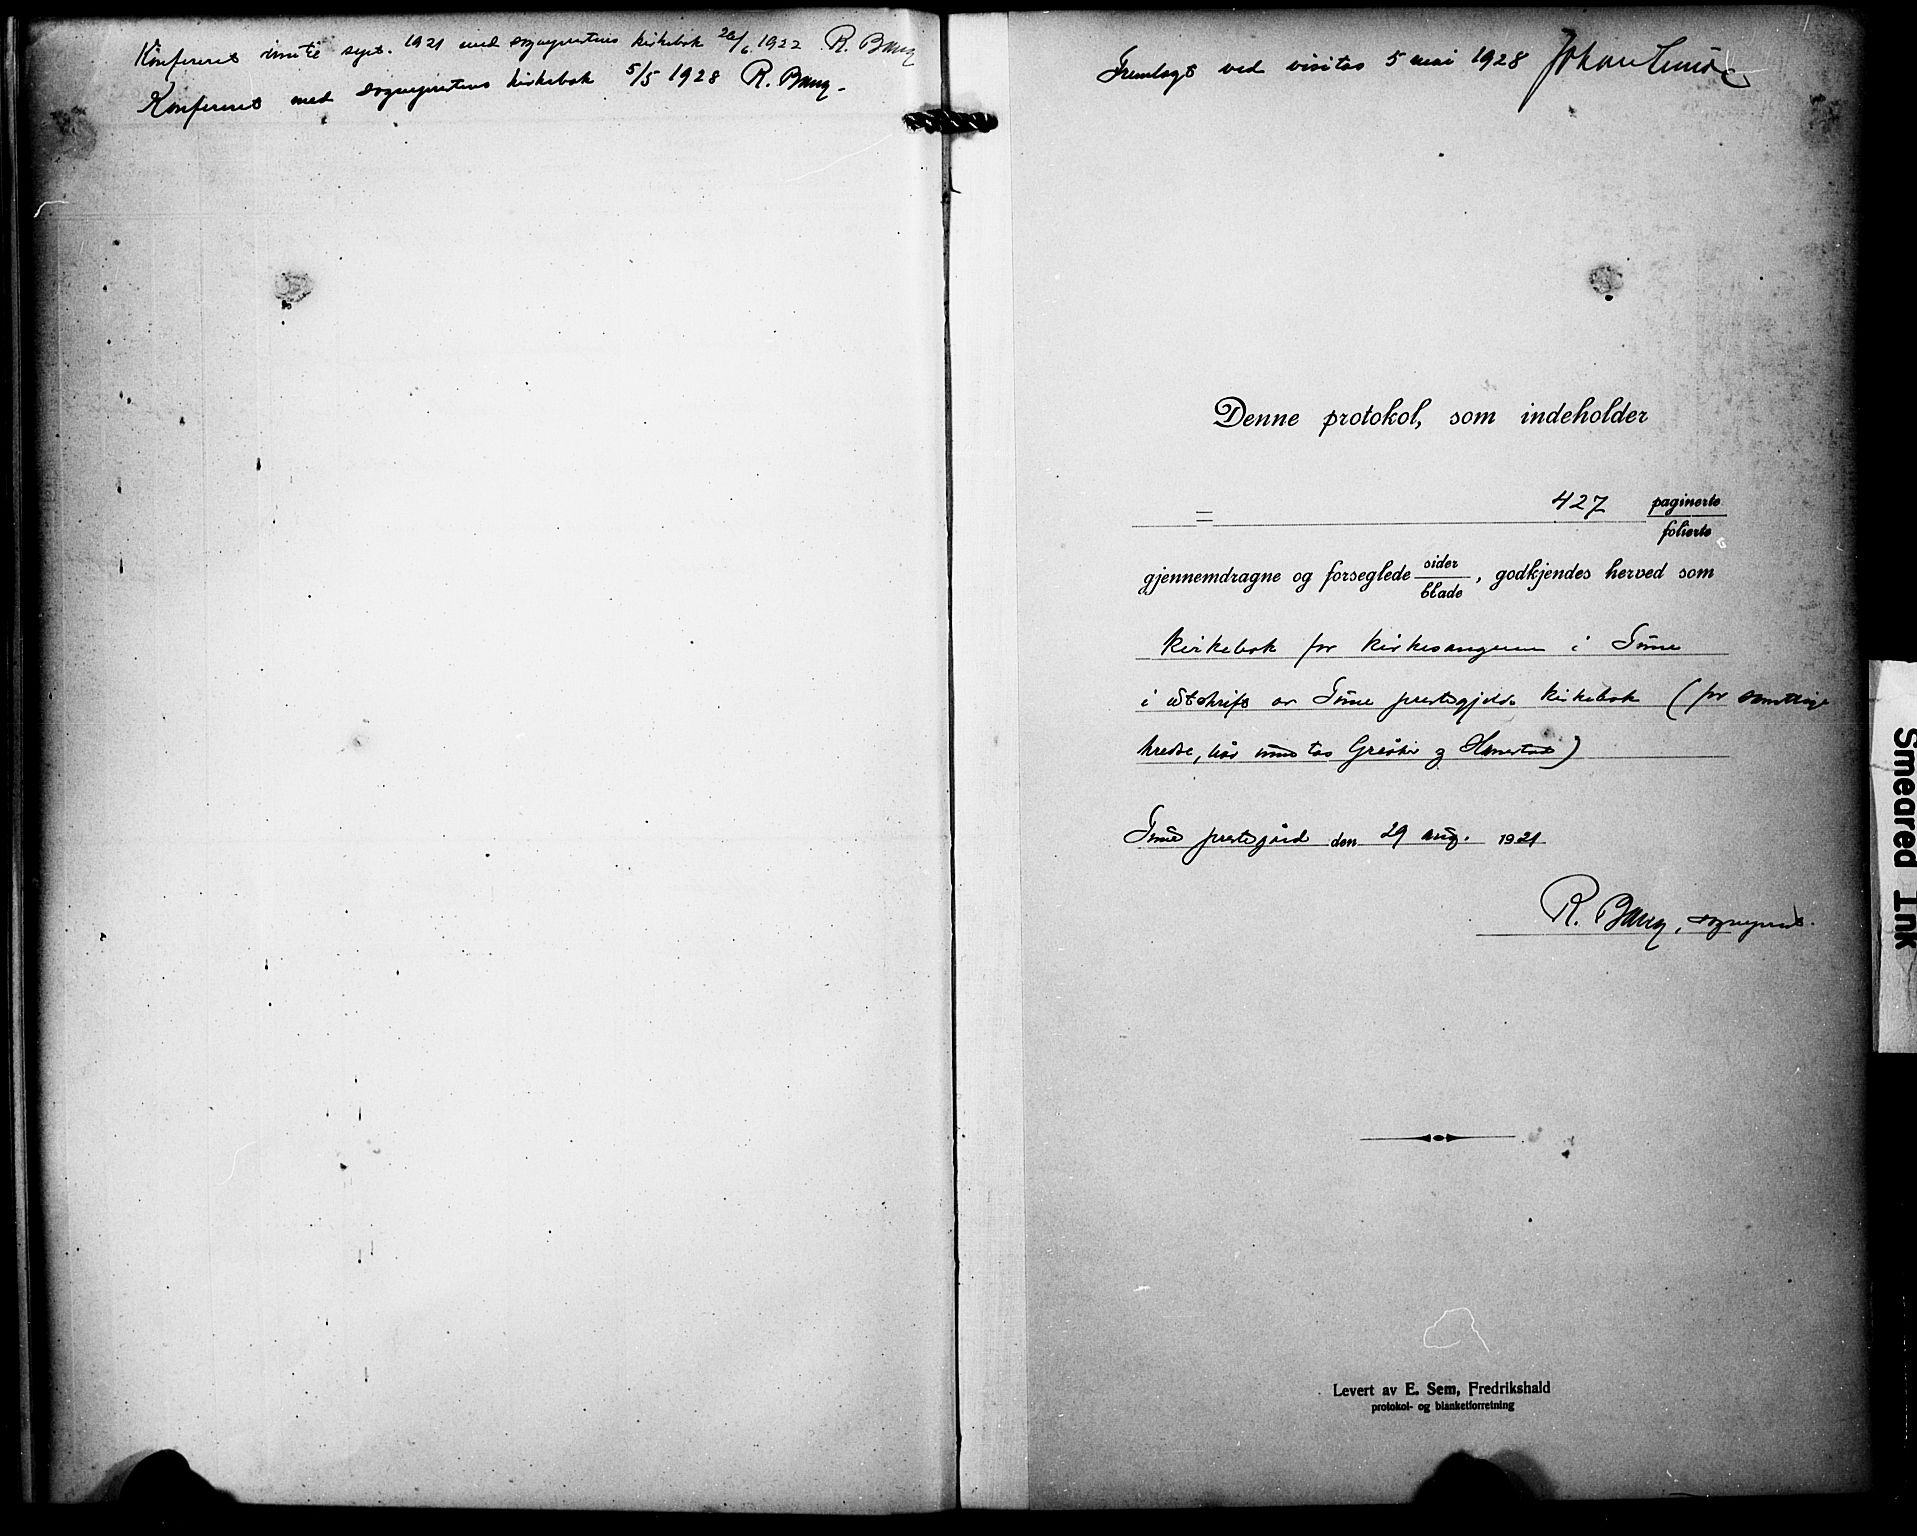 Konfereret inntil sept. 1921 med sogneprestens kirkebok 26/6 1922 R. Bang
Konferert med sogneprestens kirkebok 5/5 1928 R. Bang.
Fremlagt ved visitas 5 mai 1928 Johan Lunde
Denne protokol, som indeholder
= 427 paginerte
folierte
gjennemdragne og forseglede sider
blade, godkjendes herved som
kirkebok for kirkesangeren i Tune
i utskrift av Tune prestegjelds kirkebok (for samtlige
kredse, Greåker og
Tune prestegård den 29 aug. 1921
R. Bang, sogneprest.
Levert av E. Sem, Fredrikshald
protokol- og blanketforretning
Smeared Ink